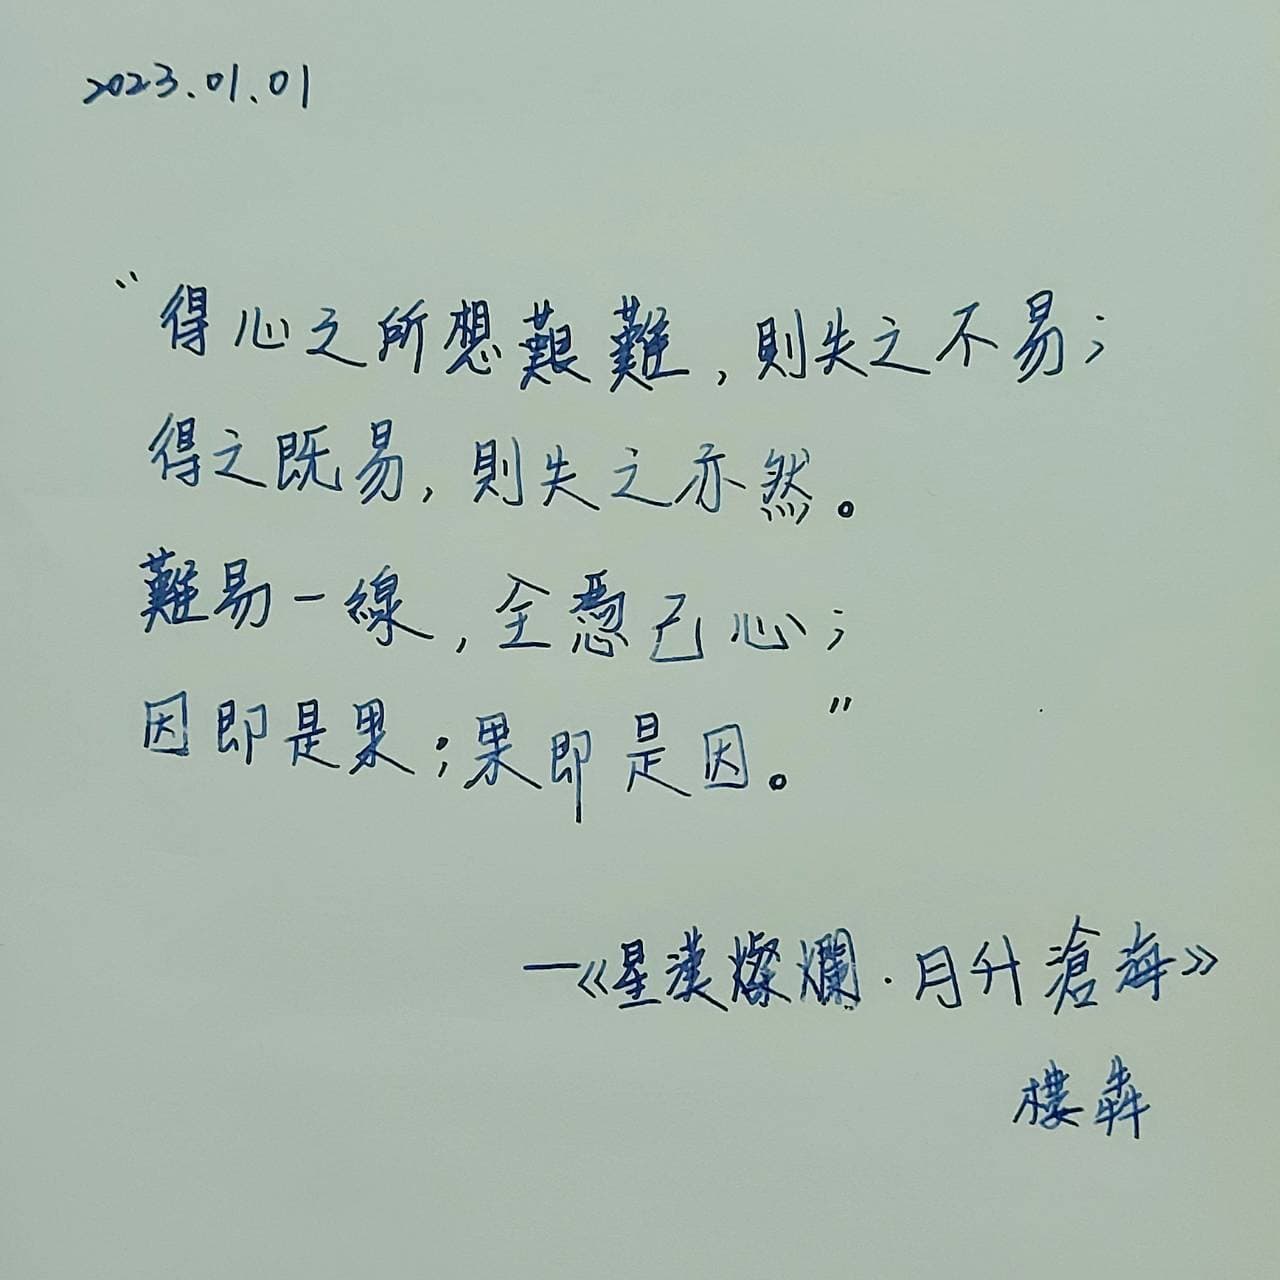 2023.01.01
“得心之所想艱難，則失之不易；
得之既易，則失之亦然。
難易一線，全憑己心；
因即是果；果即是因。”
—《星漢燦爛·月升滄海》
樓犇